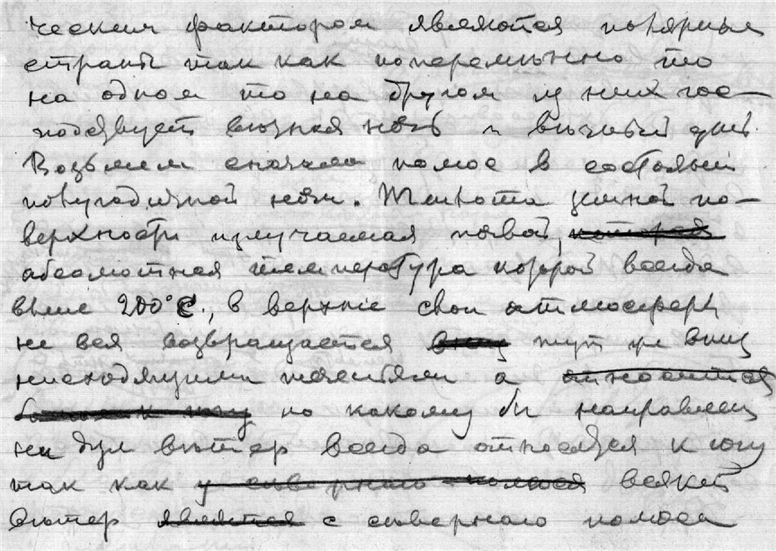 ческим фактором являются полярные
страны так как попеременно то
на одном то на другом из них гос-
подствует вечная ночь и вечный день
Возьмем сначала полюс в состоянии
полугодичной ночи. Теплота земной по-
верхности излучаемая почвой, которая
абсолютная температура которой всегда
выше 200°С., в верхние слои атмосферы
не вся возвращается вниз тут же вниз
нисходящими а относится
больше к югу по какому бы направлен
ни дул вѣтер всегда относится к югу
так как у сѣвернаго полюса всякий
вѣтер является с сѣвернаго полюса